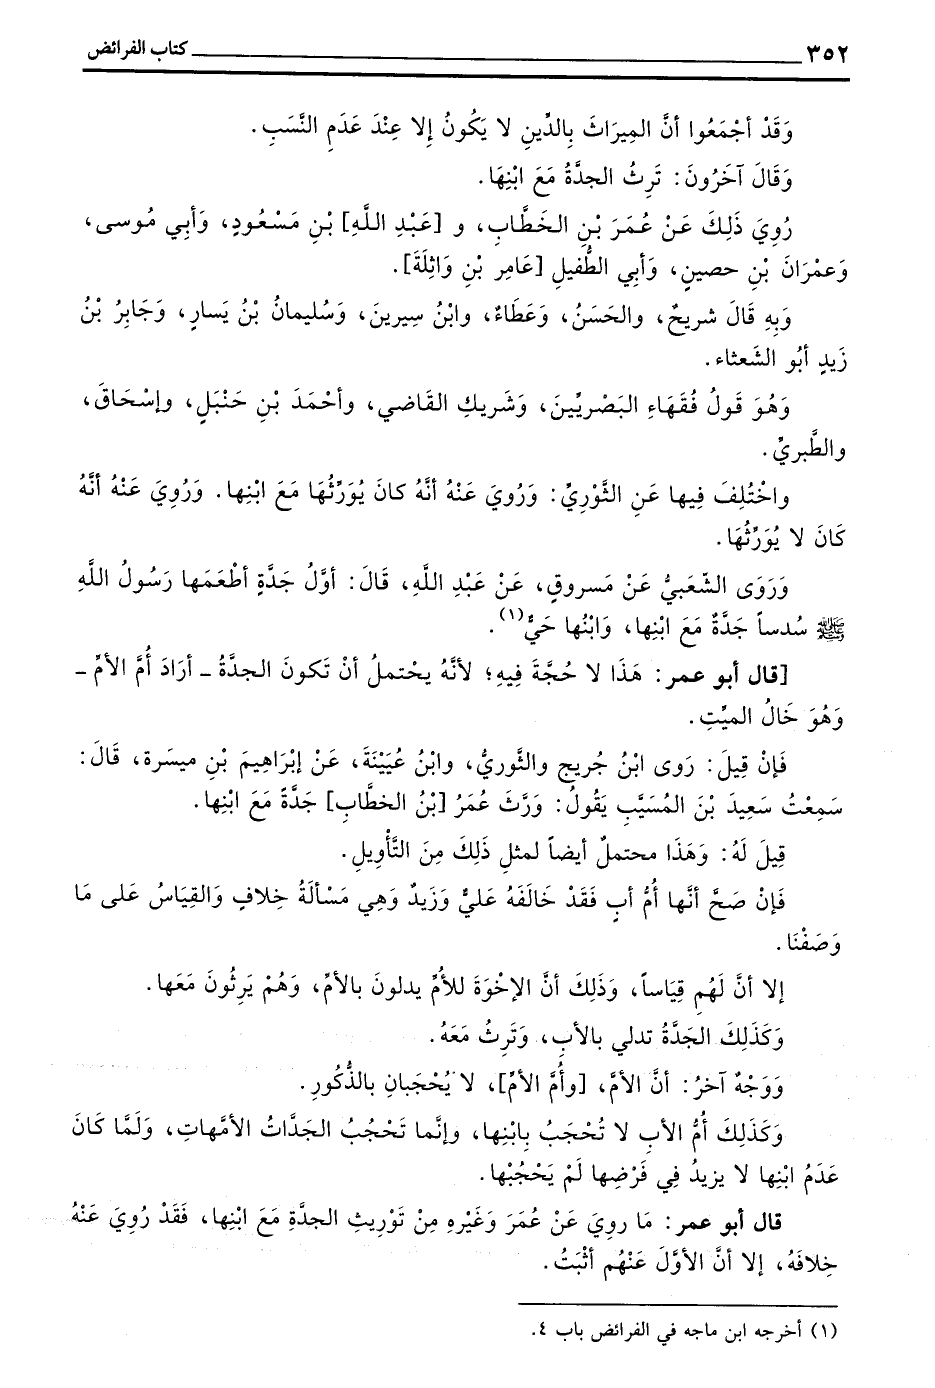 ٣٥٢ كتاب الفرائض
وَقَدْ أجْمَعُوا أنَّ المِيرَاثَ بِالدِّينِ لا يَكُونُ إلا عِنْدَ عَدَمِ النَّسَبِ.
وَقَالَ آخَرُونَ: تَرِثُ الجدَّةُ مَعَ ابْنِهَا.
رُوِيَ ذَلِكَ عَنْ عُمَرَ بْنِ الخَطَّابِ، و [عَبْدِ اللَّهِ] بْنِ مَسْعُودٍ، وَأبِي مُوسى،
وَعمْرَانَ بْنِ حصينٍ، وَأبِي الطُّفيلِ [عَامِر بْنِ وَاثِلَةَ].
وَبِهِ قَالَ شريحٌ، والحَسَنُ، وَعَطَاءٌ، وابْنُ سِيرينَ، وَسُليمانُ بْنُ يَسارٍ، وَجَابِرُ بْنُ
زَيدٍ أبُو الشَعثاء.
وَهُوَ قَولُ فُقَهَاءِ البَصْرِيِّينَ، وَشَريكِ القَاضي، وأحْمَدَ بْنِ حَنْبَلٍ، وإسْحَاقَ،
والطَّبريِّ.
واخْتُلِفَ فِيها عَنِ الثَّوْرِيِّ: وَرُويَ عَنْهُ أنَّهُ كانَ يُوَرِّثُهَا مَعَ ابْنِها. وَرُوِيَ عَنْهُ أنَّهُ
كَانَ لا يُوَرِّثُهَا.
وَرَوَى الشّعَبيُّ عَنْ مَسروقٍ، عَنْ عَبْدِ اللَّهِ، قَالَ: أوَّلُ جَدَّةٍ أطْعَمَها رَسُولُ اللَّهِ
ﷺ سُدساً جَدَّةٌ مَعَ ابْنِها، وَابْنُها حَيٌّ(١).
[قال أبو عمر: هَذَا لا حُجَّةَ فِيهِ؛ لأنَّهُ يحْتملُ أنْ تَكونَ الجدَّةُ ـ أرَادَ أُمَّ الأمِّ ـ
وَهُوَ خَالُ الميِّتِ.
فَإنْ قِيلَ: رَوى ابْنُ جُريجٍ والثَّوريُّ، وابْنُ عُيَيْنَةَ، عَنْ إبْرَاهِيمَ بْنِ ميسَرة، قَالَ:
سَمِعْتُ سَعِيدَ بْنَ المُسَيَّبِ يَقُولُ: وَرَّثَ عُمَرُ [بْنُ الخطَّابِ] جَدَّةً مَعَ ابْنِها.
قِيلَ لَهُ: وَهَذَا محتملٌ أيضاً لمثلِ ذَلِكَ مِنَ التَّأْوِيلِ.
فَإنْ صَحَّ أنَّها أُمُّ أبٍ فَقَدْ خَالَفَهُ عَليٌّ وَزَيدٌ وَهِي مَسْألَةُ خِلافٍ وَالقِيَاسُ عَلى مَا
وَصَفْنَا.
إلا أنَّ لَهُمِ قِيَاساً، وَذَلِكَ أنَّ الإخْوَةَ للأُمِّ يدلونَ بالأمِّ، وَهُمْ يَرِثُونَ مَعَها.
وَكَذَلِكَ الجَدَّةُ تدلي بالأبِ، وَتَرِثُ مَعَهُ.
وَوَجْهٌ آخرُ: أنَّ الأمَّ، [وأُمَّ الأمِّ]، لا يُحْجَبانِ بالذُّكُورِ.
وَكَذَلِكَ أُمُّ الأبِ لا تُحْجَبُ بِابْنِها، وإنَّما تَحْجُبُ الجَدَّاتُ الأمَّهاتِ، وَلَمَّا كَانَ
عَدَمُ ابْنِها لا يزيدُ فِي فَرْضِها لَمْ يَحْجُبْها.
قال أبو عمر: مَا روِيَ عَنْ عُمَرَ وَغَيْرِهِ مِنْ تَوْرِيثِ الجدَّةِ مَعَ ابْنِها، فَقَدْ رُوِيَ عَنْهُ
خِلافَهُ، إلا أنَّ الأوَّلَ عَنْهُم أثْبَتُ.
(١) أخرجه ابن ماجه في الفرائض باب ٤.